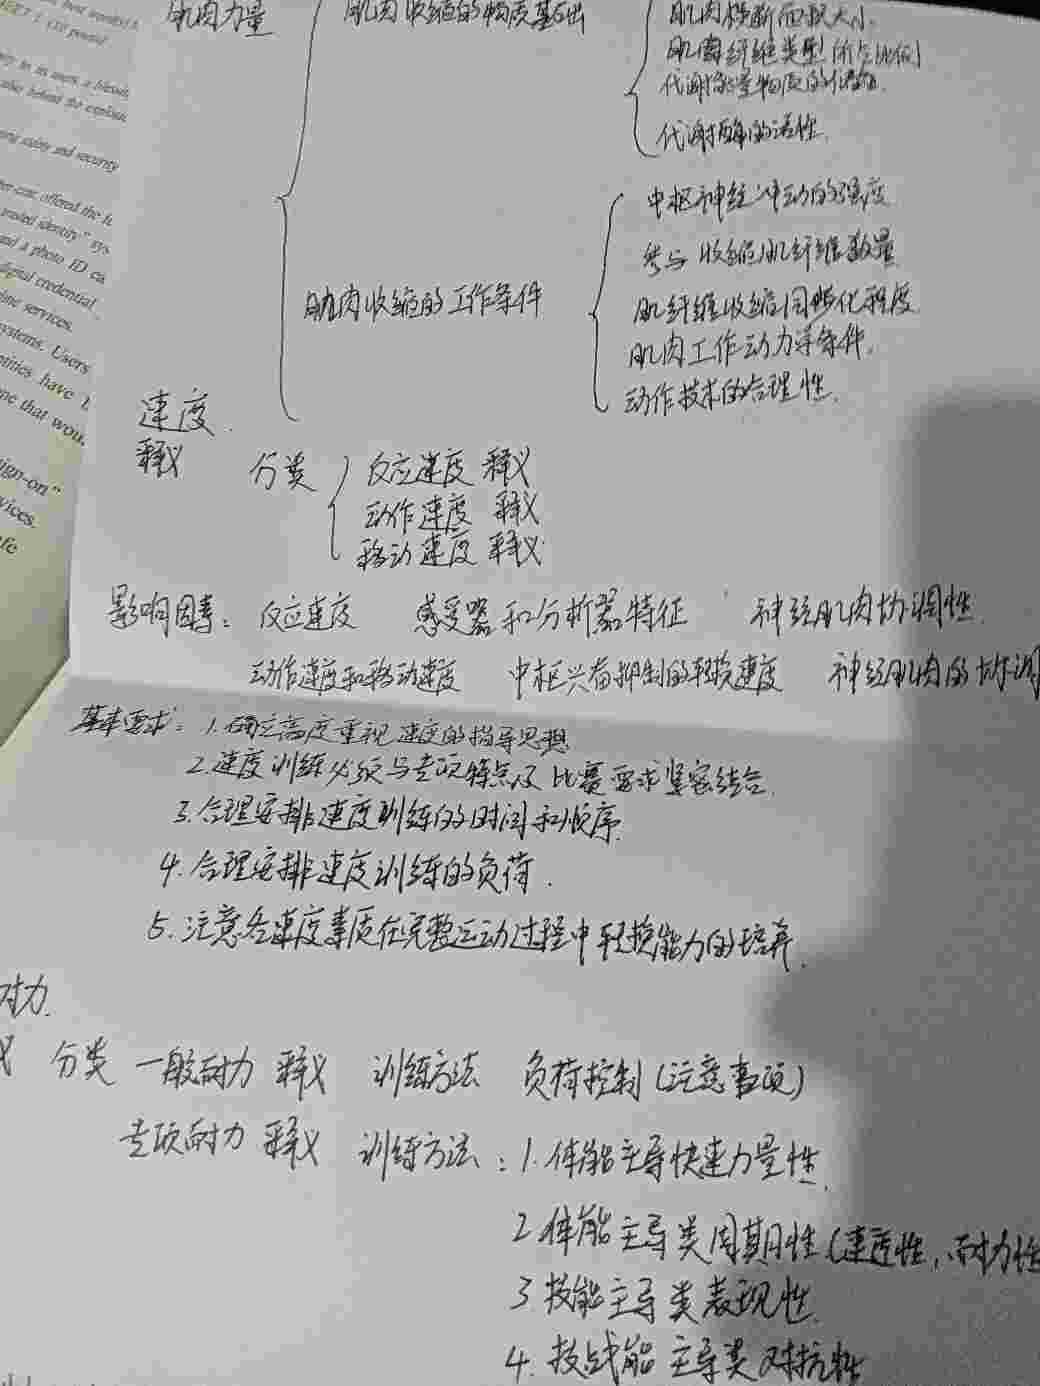 best
SET 1 (10 points)
users a
also behind the explosi
safety and security
offered the
identity" sys
and a photo ID ca
digital credential
line services.
systems. Users
have
ne that wou
ign-on"
vices.
肌肉力量 肌肉收缩的物质基础
肌肉横断面积大小
肌肉纤维类型所占比例
代谢能量物质的储备
代谢酶的活性
中枢神经冲动的强度
参与收缩肌纤维数量
肌肉收缩的工作条件
肌纤维收缩同步化程度
肌肉工作动力学条件,
动作技术的合理性
速度
释义 分类 反应速度 释义
动作速度 释义
移动速度 释义
影响因素: 反应速度 感受器和分析器特征 神经肌肉协调性
动作速度和移动速度 中枢兴奋抑制的转换速度 神经肌肉的协调
基本要求: 1.确立高度重视速度的指导思想
2.速度训练必须与专项特点及比赛要求紧密结合
3.合理安排速度训练的时间和顺序
4.合理安排速度训练的负荷.
5.注意各速度素质在完整运动过程中转换能力的培养
耐力.
义 分类 一般耐力 释义 训练方法 负荷控制(注意事项)
专项耐力 释义 训练方法: 1.体能主导快速力量性
2 体能主导类周期性(速度性,耐力性
3 技能主导类表现性
4.技战能主导类对抗性